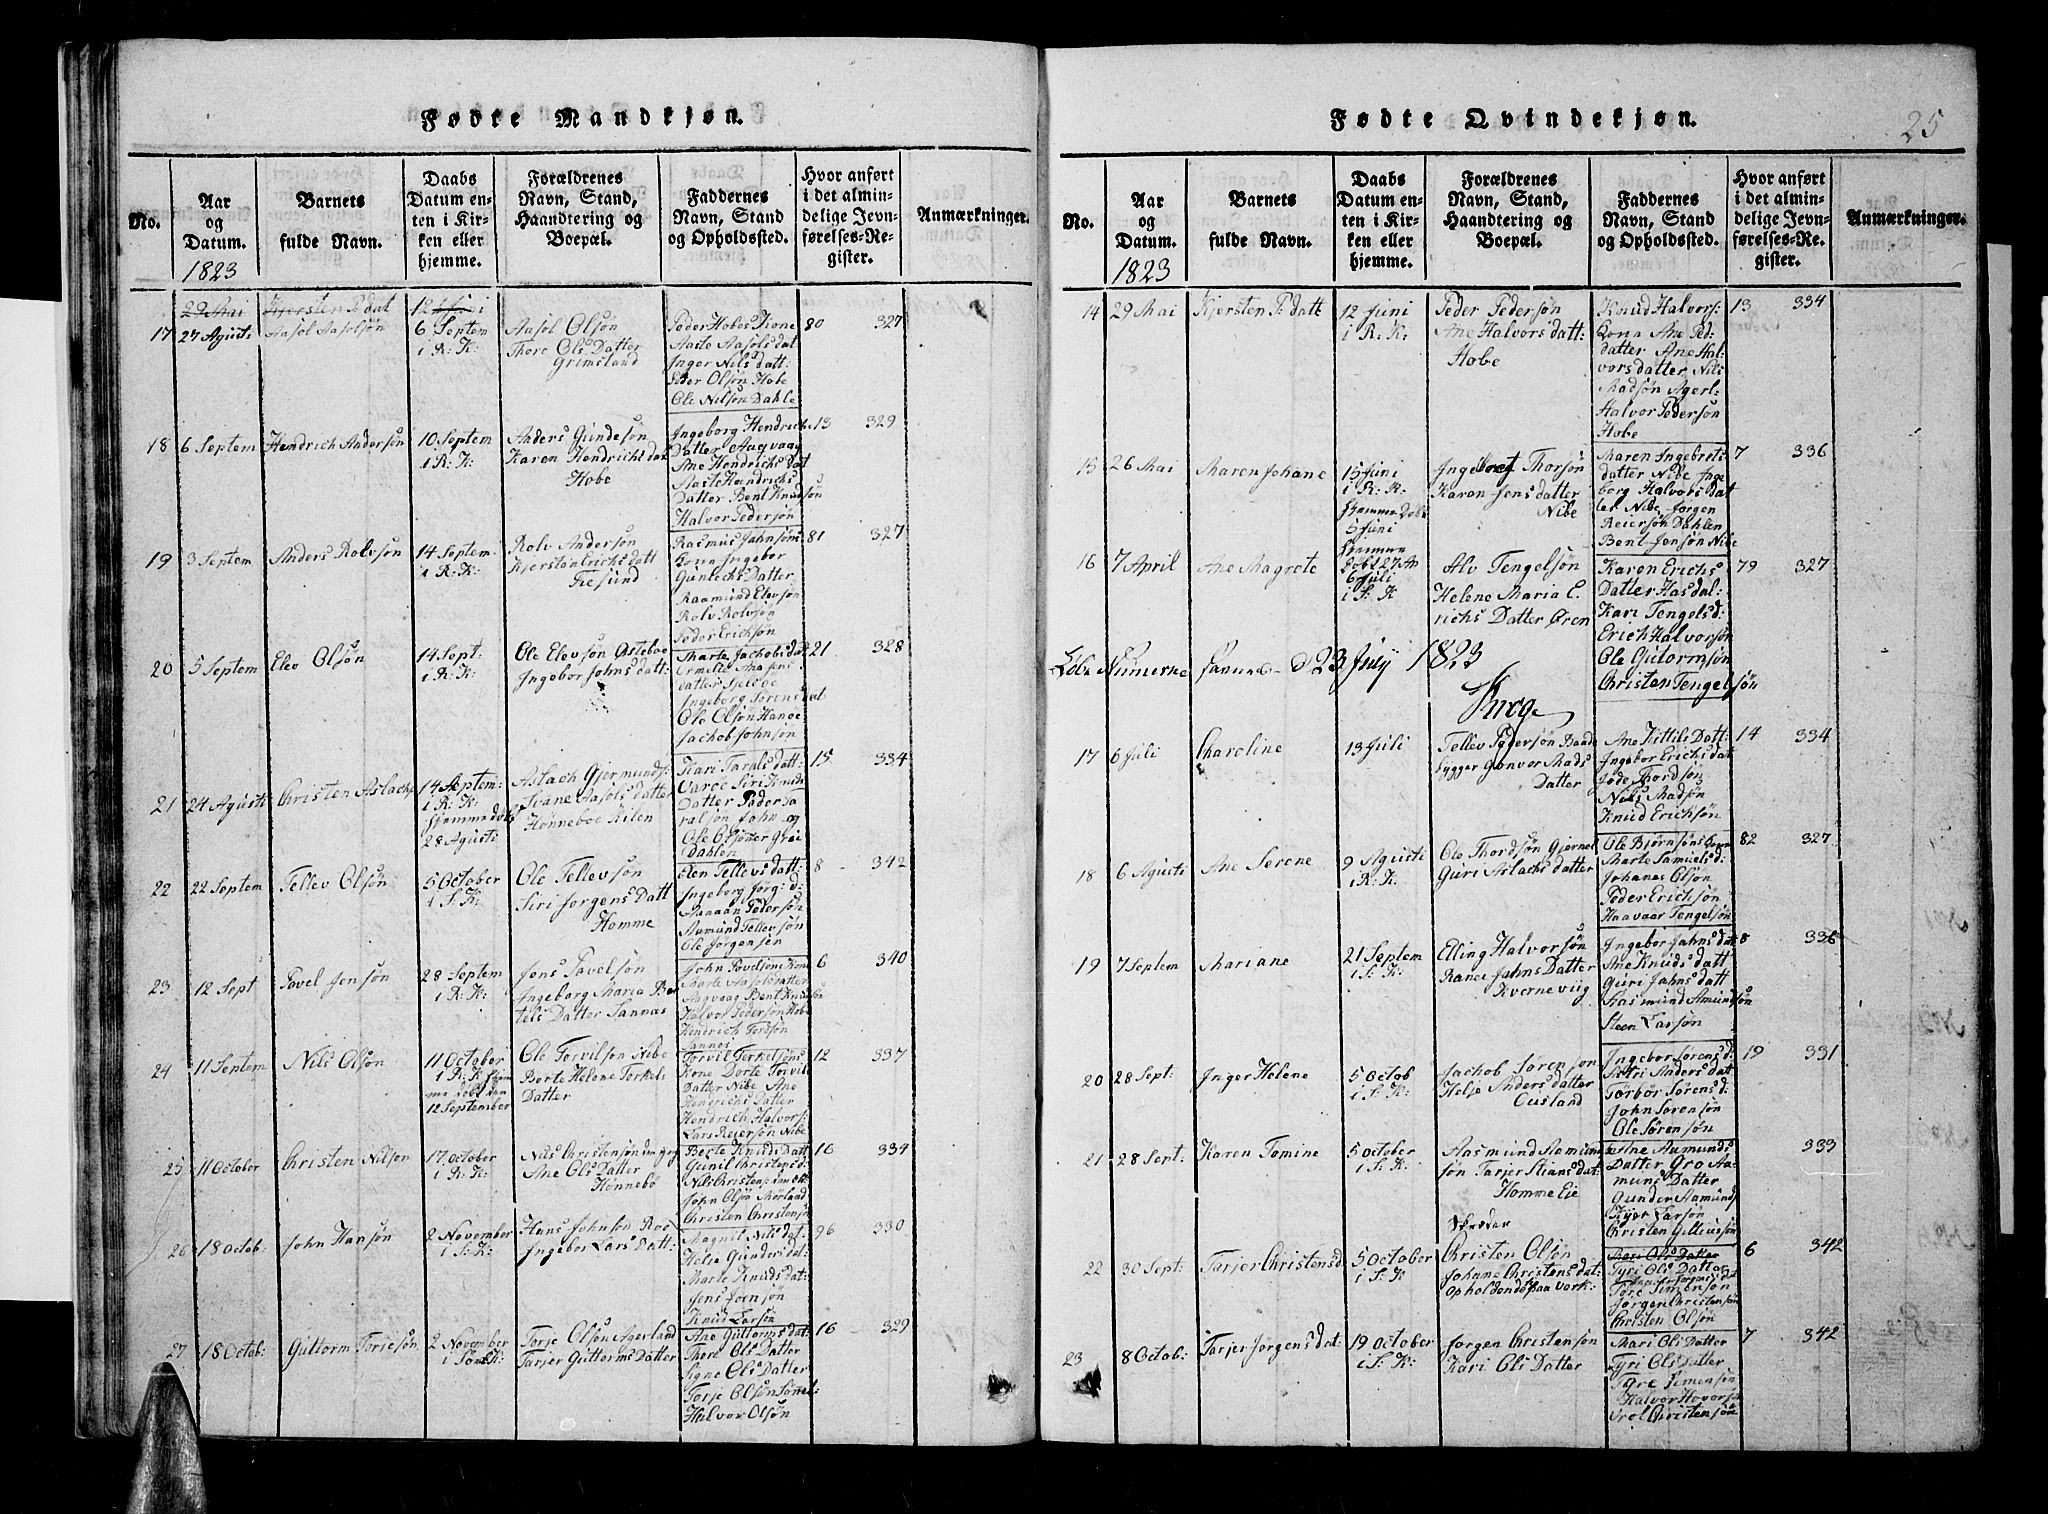 Fødte Mandkjøn.
No.
Aar og Datum.
1823
Barnets fulde Navn.
Daabs Datum enten i Kirken eller hjemme.
Forældrenes Navn, Stand, Haandtering og Boepæl.
Faddernes Navn, Stand og Opholdssted.
Hvor anført i det almindelige Jevnførelses-Register.
Anmærkninger.
29 Mai Kjersten P dat 12 Juni
17 27 Agusti Aasol Aasolsøn
6 Septem
i R: K:
Aasol Olsøn
Thore Ols Datter
Grimsland
Peder Hobes Kone
Aaste Aasols dat
Inger Nils datt:
Peder Olsøn Hobe
Ole Nilsøn Dahle
80 327
18 6 Septem Hendrich Andersøn
10 Septem
i R: K:
Anders Gundesøn
Karen Hendrichs dat
Hobe
Ingeborg Hendrichs
Datter Aagvaag
Ane Hendrichs Dat
Aaste Hendrichs
Datter Bent Knudsøn
Halvor Pedersøn
13 329
19 3 Septem Anders Rolvsøn
14 Septem
i R: K:
Rolv Andersøn
Kjersten Erichs datt
Resund
Rasmus Jahnsøns
Kona Ingebor
Gunlechs Datter
Raamund Elevsøn
Rolv Rolvsøn
Peder Erichsøn
81 327
20 5 Septem Elev Olsøn
14 Sept:
i R: K:
Ole Elevsøn Østeboe
Ingebor Johns datt:
Marte Jachobs dat
datter
Ingeborg Sørens dat
Ole Olsøn Hanøe
Jachob Johnsøn
21 328
21 24 Agusti Christen Aslachs:
14 Septem:
i R: K:
hjemmedøbt
28 Agusti
Aslach Gjermunds:
Ivane Aasols datter
Hønneboe Kilen
Kari Tarals datt:
Varoe Siri Knuds
Datter Peder Ha
ralsøn John og
Ole Olsøner Grøs
Dahlen
15 334
22 22 Septem Tellev Olsøn
5 October
i S: K:
Ole Tellevsøn
Siri Jørgens Datt
Homme
Elen Tellevs datt:
Ingeborg Jørg: d:
Aanaan Pedersøn
Aamund Tellevsøn
Ole Jørgensen
8 342
23 12 Sept Povel Jensøn
28 Septem
i R: K:
Jens Povelsøn
Ingeborg Maria Ber
tels Datter Sannæs
John Povelsøns Kone
Marte Aasols datter
Aagvaag Bent Knudsøn
Halvor Pedersøn Hobe
Hendrich Tordsøn
Sannes
6 340
24 11 Septem Nils Olsøn
11 October
i R: K: hjem
me døbt den
12 September
Ole Torvilsøn Nibe
Berte Helene Terkels
Datter
Torvil Terkelsøns
Kone Dorte Torvils
Datter Nibe Ane
Hendrichs Datter
Hendrich Halvors:
Lars Reiersøn Nibe
12 337
25 11 October Christen Nilsøn
17 October
i R: K:
Nils Christensøn den yng
Ane Ols Datter
Hønnebø
Berte Knuds Datt
Gunil Christens d:
Nils Christens: den eldr
John Olsøn Mørland
Christen Christensøn
10 334
26 18 Octob: John Hansøn
2 November
i S: K:
Hans Johnsøn Roe
Ingebor Lars Datt:
Magnil Nils dat
Helie Gunders dat:
Marte Knuds dat:
Jens Joensøn
Knud Larsøn
96 330
27 18 Octob: Guttorm Torjesøn
2 November
i S: K:
Torje Olsøn Agerland
Tarjer Guttorms Datter
Ane Guttorms dat:
Thore Ols Datter
Signe Ols Datter
Torje Olsøn Sønet:
Halvor Olsøn
16 329
Fødte Qvindekjøn.
25
No.
Aar og Datum.
1823
Barnets fulde Navn.
Daabs Datum enten i Kirken eller hjemme.
Forældrenes Navn, Stand, Haandtering og Boepæl.
Faddernes Navn, Stand og Opholdssted.
Hvor anført i det almindelige Jevnførelses-Register.
Anmærkninger.
14 29 Mai Kjersten P datt
12 Juni
i R: K:
Peder Pedersøn
Ane Halvors datt:
Hobe
Knud Halvors:
Kona Ane Ped:
datter Ane Hal:
vors datter Nils
Madsøn Agerl:
Halvor Pedersøn
Hobe
13 334
15 26 Mai Maren Johane
15 Juni
i R: K:
hjemme Døbt
5 Juni
Ingebret Thorsøn
Karen Jens datter
Nibe
Maren Ingebrets
datter Nibe Inge
borg Halvors dat
ter Nibe Jørgen
Reiersøn Dahlen
Bent Jensøn Nibe
7 336
16 7 April Ane Magrete
hjemme
døbt 27 Ap
6 Juli
i S: K
Alv Tengelsøn
Helene Maria E.
richs Datter Øren
Karen Erichs
Datter Hasdal:
Kari Tengels d:
Erich Halvorsøn
Ole Gutormsøn
Christen Tengelsøn
79 327
23 July 1823
Krog
17 6 Juli Charoline
13 Juli
Tellev Pedersøn Baads
bygger Gunvor Mads
Datter
Ane Kittils Datt:
Ingebor Erichs dat
Jode Thordsøn
Nils Madsøn
Knud Erichsøn
14 334
18 6 Agusti Ane Serene
9 Agusti
i R: K:
Ole Thordsøn Gjernes
Guri Aslachs datter
Ole Bjørnsøns Kone
Marte Samuels d:
Johanes Olsøn
Peder Erichsøn
Haavaar Tengelsøn
82 327
19 7 Septem Mariane
21 Septem
i S: K:
Elling Halvorsøn
Ranei Jahns Datter
Kverneviig
Ingebor Jahns dat
Ane Knuds datt
Guri Jahns datt
Aasmund Amundsøn
Steen Larsøn
8 336
20 28 Sept: Inger Helene
5 Octob
i S: K:
Jachob Sørensøn
Helje Anders datter
Ousland
Ingebor Sørens d:
Astri Anders datt
Tørbør Sørens d:
John Sørensøn
Ole Sørensøn
19 331
21 28 Sept. Karen Tomine
5 October
i S: K:
Aasmund Aamuns
søn Tarjer Stians dat:
Homme Eie
Ane Aamunds
Datter Gro Aa:
muns Datter
Gunder Aamunds
Tyer Larsøn
Christen Gilliussøn
333
22 30 Sept: Tarjer Christens d
5 October
i S: K
Skræder
Christen Olsøn
Johane Christens dat:
opholdende paa Værk:
Mari Ols Datter
Tyri Ols Datter
Tore Simensøn
Jørgen Christensøn
Christen Olsøn
6 342
23 8 Octob: Tarjer Jørgens dat:
19 October
i S: K:
Jørgen Christensøn
Kari Ols Datter
Mari Ols Datter
Tyri Ols Datter
Tyre Simensøn
Halvor Hovorsøn
Christensøn
7 342